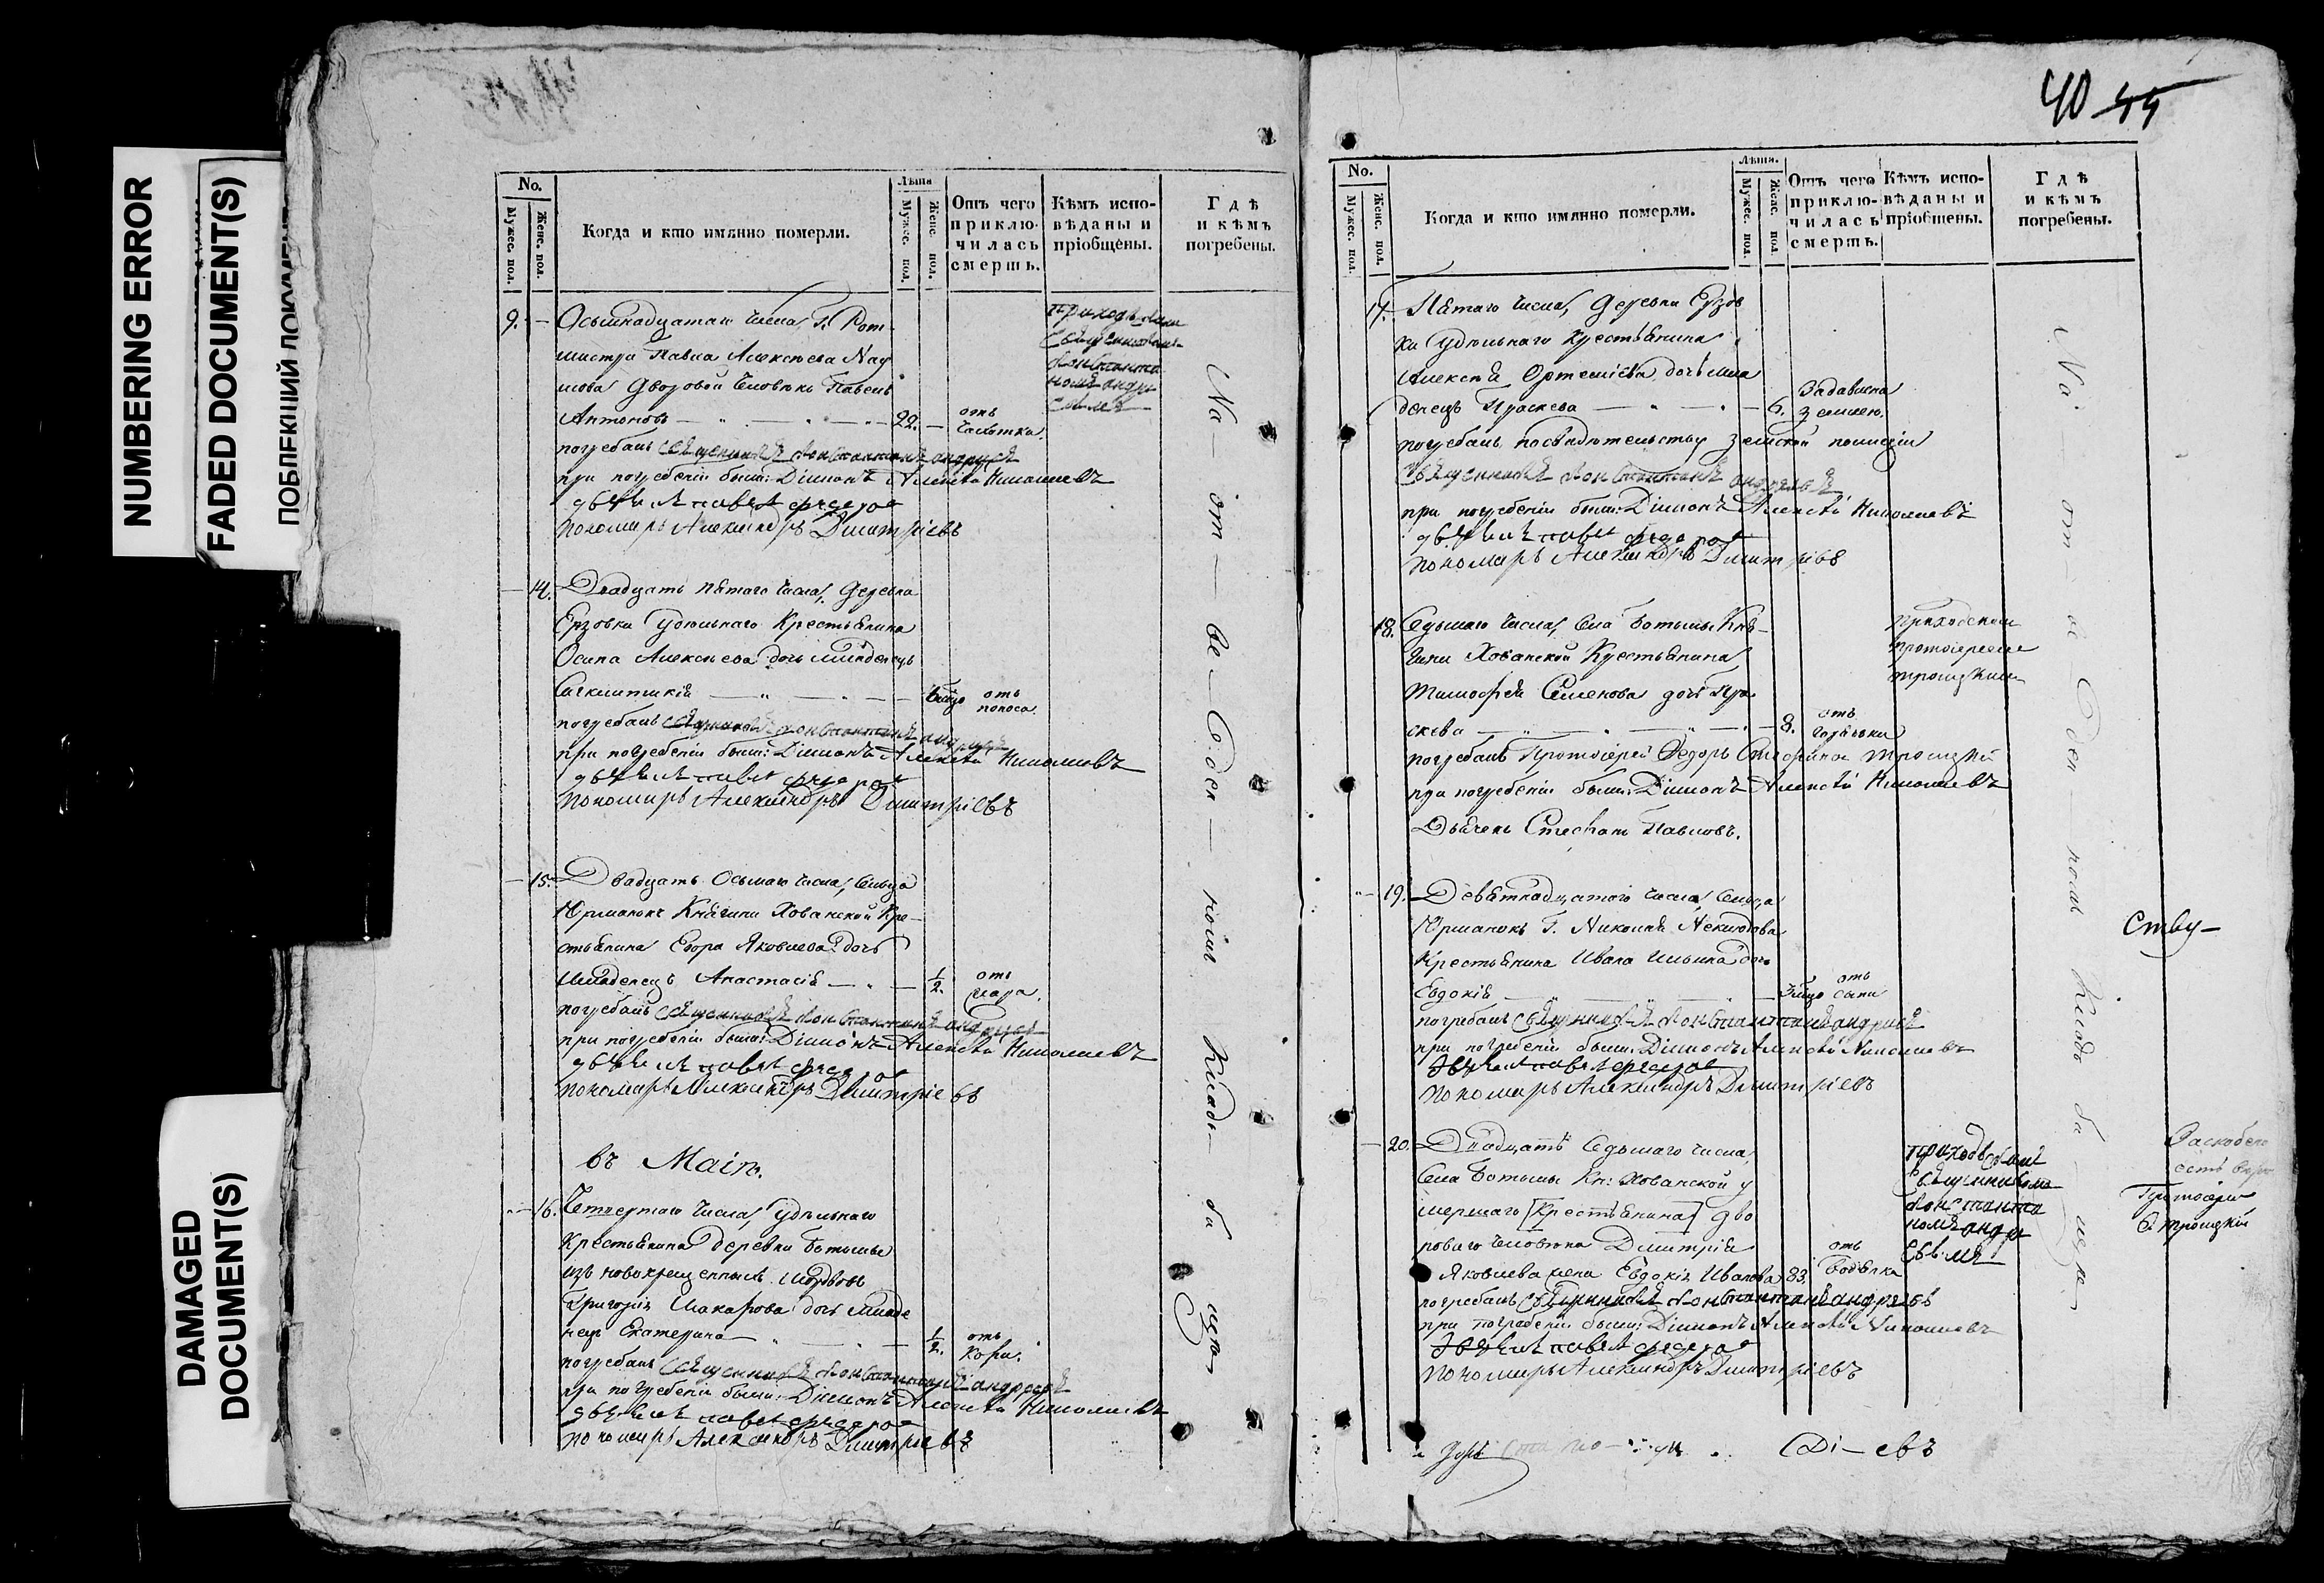 NUMBERING ERROR
FADED DOCUMENT(S)
DAMAGED
DOCUMENT(S)
No.
Мужес. пол.
Женс. пол.
Когда и кто имянно померли.
Лѣта
Мужес. пол.
Женс. пол.
Отъ чего
приклю-
чилась
смерть.
Кѣмъ испо-
вѣданы и
пріобщены.
Гдѣ
и кѣмъ
погребены.
9. Осьмнадцатаго числа, Г. Рот-
мистра Павла Алексѣева Нау
мова дворовой человѣкъ Павелъ
Антоновъ 22. отъ чахотки.
погребалъ священникъ константинъ андреевъ
при погребеніи были: Діаконъ Алексѣй Николаевъ
дьячекъ павелъ федоров
пономарь Александръ Димитріевъ
14. Двадцать пятаго числа, деревни
Ерзовки удѣльнаго крестьянина
Осипа Алексѣева дочь младенецъ
отъ поноса.
погребалъ священникъ константинъ андреевъ
при погребеніи были: Діаконъ Алексѣй Николаевъ
дьячекъ павелъ федоров
пономарь Александръ Димитріевъ
15. Двадцать Осьмаго числа, сельца
Юрманокъ Княгини Хованской Кре-
стьянина Егора Яковлева дочь
младенецъ Анастасія 1/2. отъ
погребалъ священникъ константинъ андреевъ
при погребеніи были: Діаконъ Алексѣй Николаевъ
дьячекъ павелъ федоров
пономарь Александръ Димитріевъ
въ Маіѣ.
16. Четвертаго числа, удѣльнаго
крестьянина деревни Ботьмы
изъ новокрещенныхъ мордовъ
Григорія Макарова дочь младе
нецъ Екатерина 1/2. отъ кори.
погребалъ священникъ константинъ андреевъ
при погребеніи были: Діаконъ Алексѣй Николаевъ
дьячекъ павелъ федоров
пономарь Александръ Димитріевъ
приходскимъ
священникомъ
константи
номъ андре
евымъ
На отве денномъ кладби щѣ
40 44
No.
Мужес. пол.
Женс. пол.
Когда и кто имянно померли.
Лѣта.
Мужес. пол.
Женс. пол.
Отъ чего
приклю-
чилась
смерть.
Кѣмъ испо-
вѣданы и
пріобщены.
Гдѣ
и кѣмъ
погребены.
17. Пятаго числа, деревни Ерзов
ки удѣльнаго крестьянина
Алексѣя Ортеміева дочь мла
денецъ Праскева 6. Задавлена землею.
погребалъ по свидѣтельству земской полиціи
священникъ константинъ андреевъ
при погребеніи были: Діаконъ Алексѣй Николаевъ
дьячекъ павелъ федоров
пономарь Александръ Димитріевъ
18. Седьмаго числа, села Ботьмы Кня-
гини Хованской крестьянина
Тимофея Семенова дочь Пра
скева 8. отъ горячки
погребалъ Протоіерей Ѳедоръ Троицкій
при погребеніи были: Діаконъ Алексѣй Николаевъ
Дьячекъ Стефанъ Павловъ.
приходскимъ
протоіереемъ
троицкимъ
19. Девятнадцатаго числа сельца
Юрманокъ Г. Николая Неклюдова
крестьянина Ивана Ильина дочь
Евдокія отъ оспи
погребалъ священникъ константинъ андреевъ
при погребеніи были: Діаконъ Алексѣй Николаевъ
дьячекъ павелъ федоров
пономарь Александръ Димитріевъ
20. Двадцать Седьмаго числа,
Села Ботьмы Кн: Хованской у
мершаго [крестьянина] дво
роваго человѣка Димитрія
Яковлева жена Евдокія Иванова 83. отъ водянки
погребалъ священникъ константинъ андреевъ
при погребеніи были: Діаконъ Алексѣй Николаевъ
дьячекъ павелъ федоров
пономарь Александръ Димитріевъ
приходскимъ
священникомъ
константи
номъ андре
евымъ
На от ве ден номъ кладби щѣ
ству-
Протоіерей
Ѳ. Троицкій
Ді-евъ